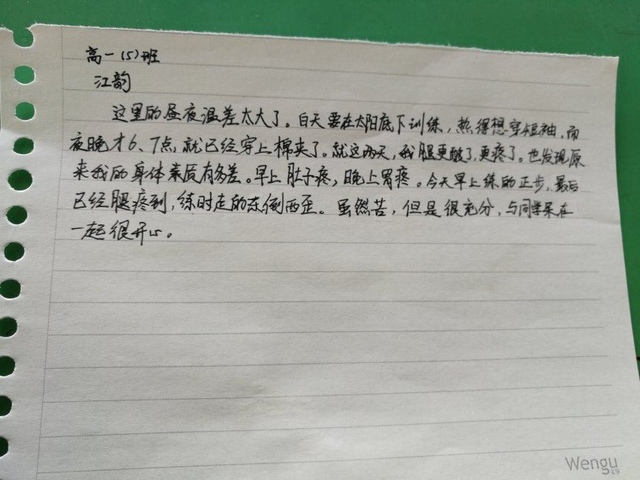 高一(5)班
江韵
这里的昼夜温差太大了。白天要在太阳底下训练，热得想穿短袖，而
夜晚才6、7点，就已经穿上棉夹了。就这两天，我腿更酸了，更疼了。也发现原
来我的身体素质有多差。早上肚子疼，晚上胃疼。今天早上练的正步，最后
已经腿疼到，练时走的东倒西歪。虽然苦，但是很充分，与同学呆在
一起很开心。
Wengu